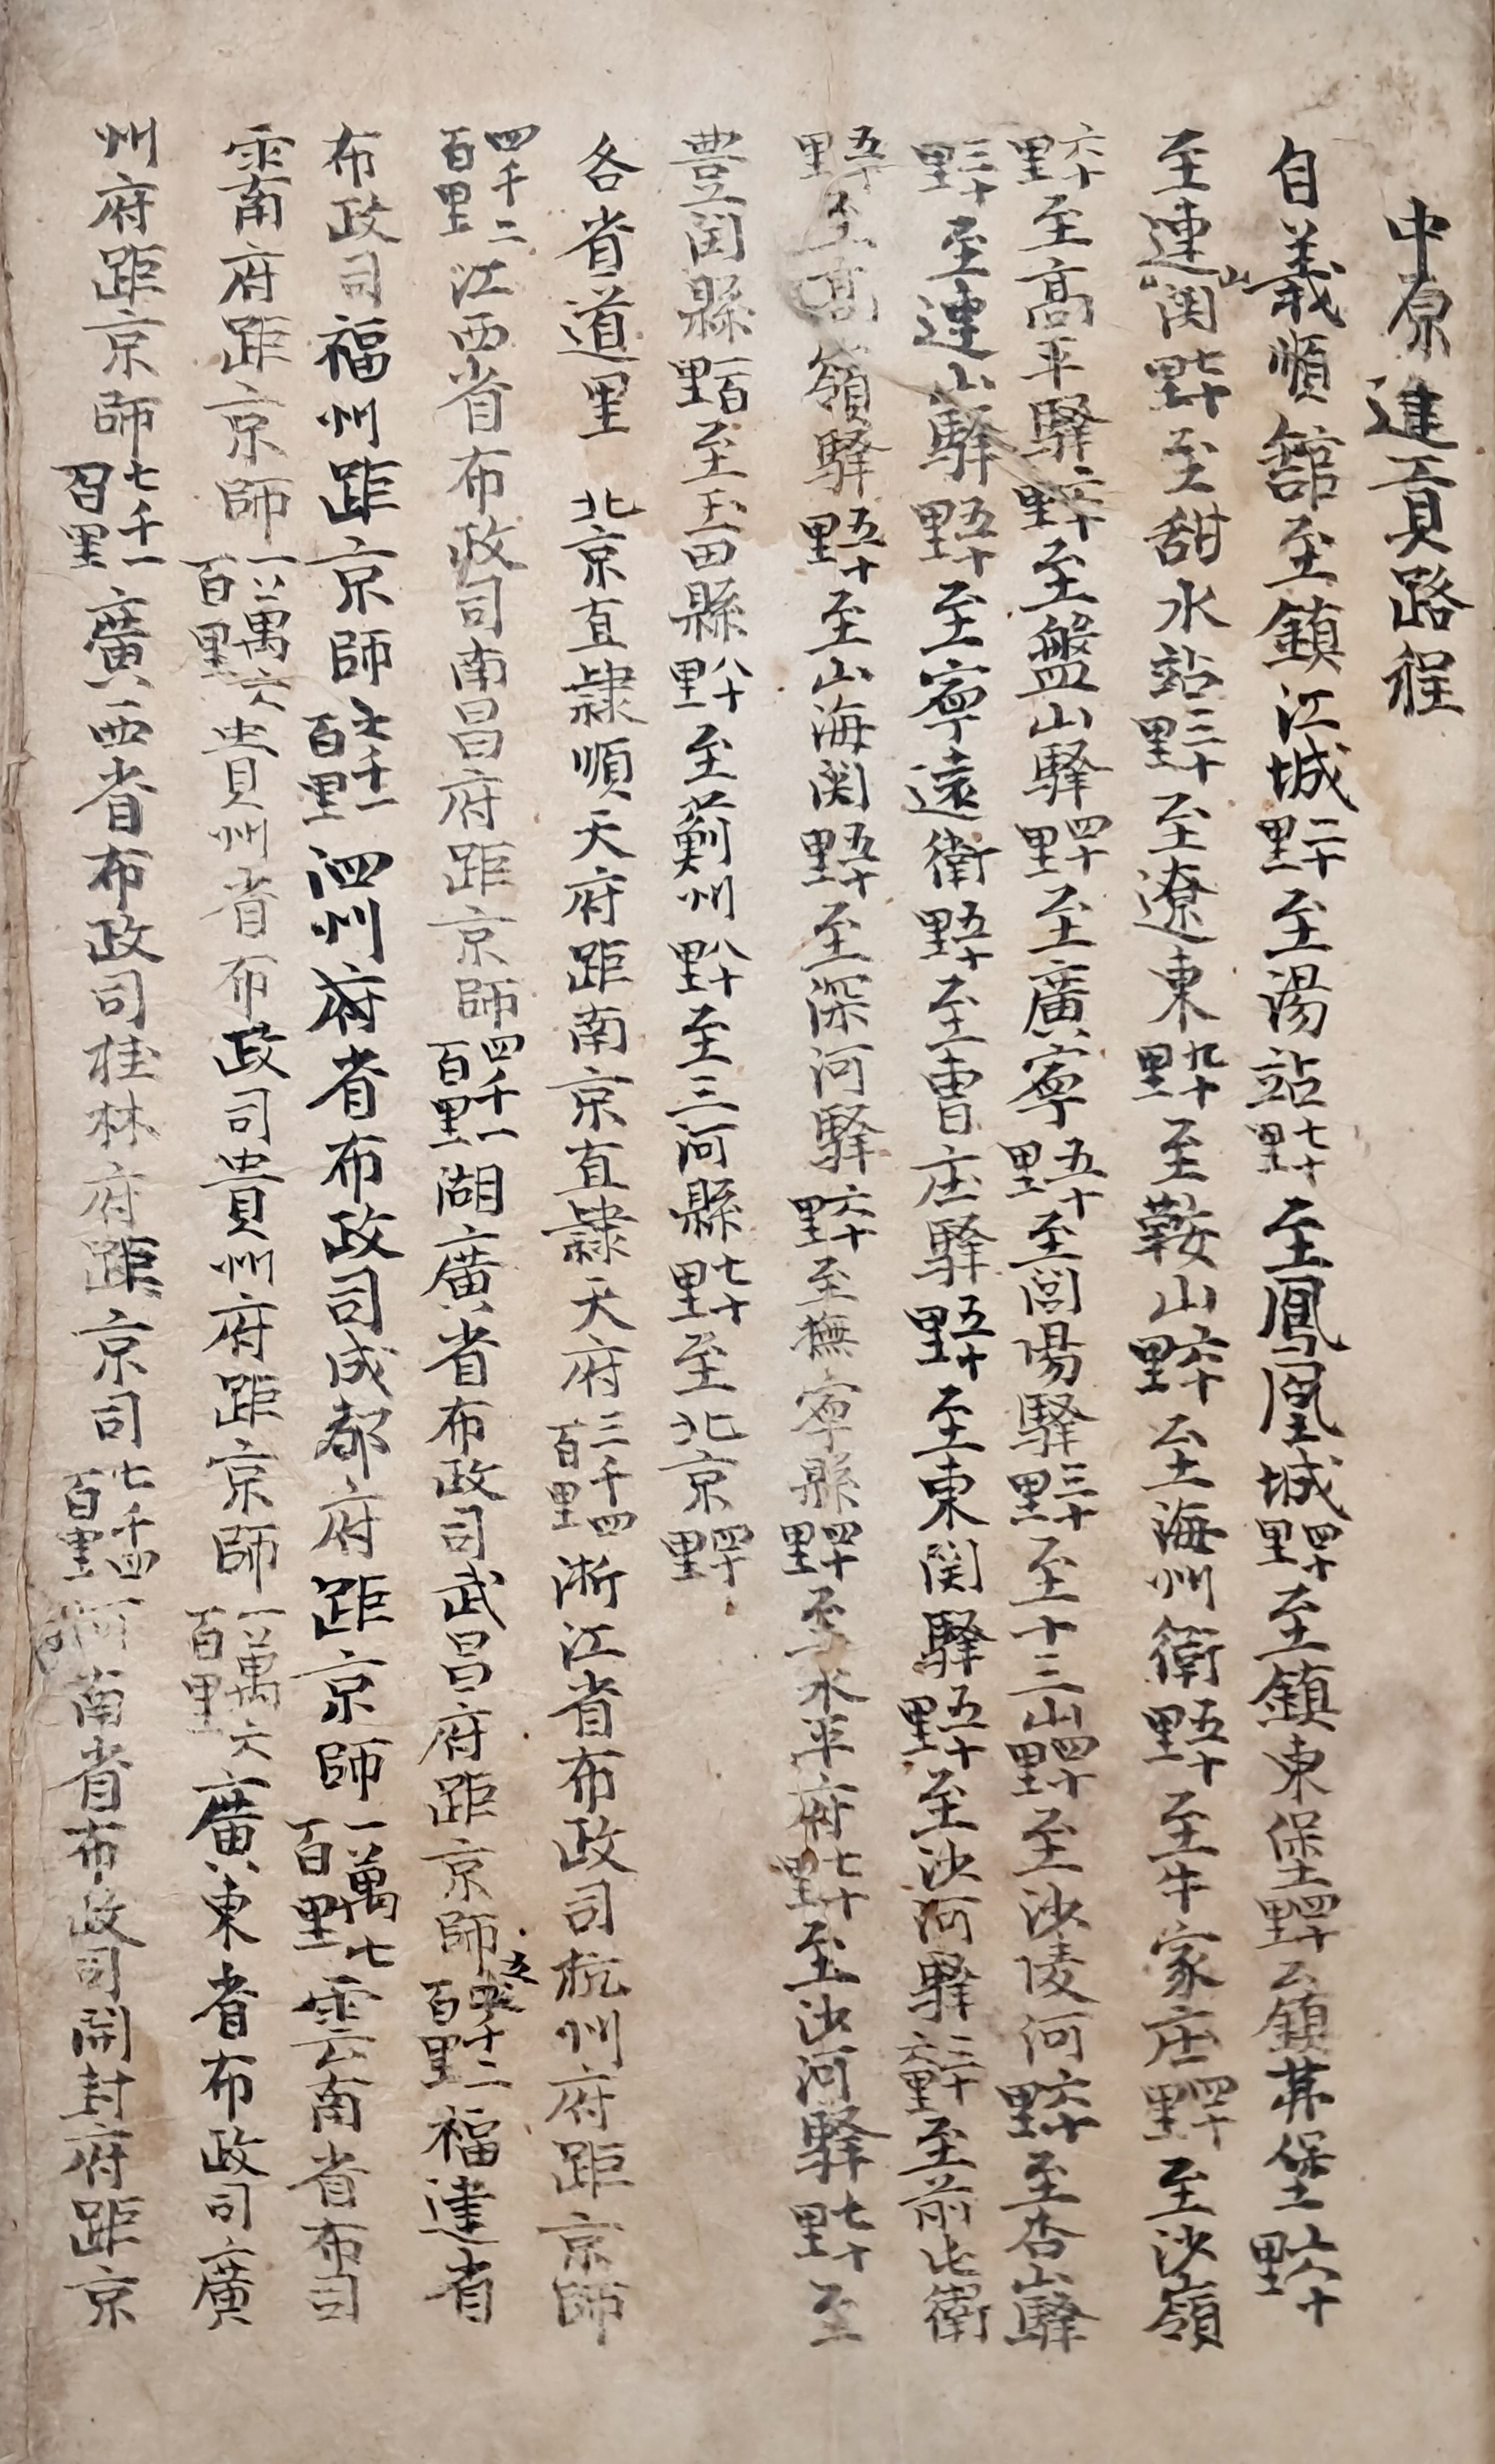 中原進貢路程
自義順舘至鎮江城二十里至湯站七十里至鳳凰城四十里至鎮東堡四十里至鎮夷堡六十里
至連山関七十里至甜水站三十里至遼東九十里至鞍山六十里至海州衛五十里至牛家庄四十里至沙嶺
六十里至高平驛六十里至盤山驛四十里至廣寧五十里至閭陽驛三十里至十三山四十里至沙陵河六十里至杏山驛
三十里至連山驛五十里至寧遠衛五十里至曺庄驛五十里至東関驛五十里至沙河驛三十六里至前屯衛
五十里至高嶺驛五十里至山海関五十里至深河驛六十里至撫寧縣四十里至永平府七十里至沙河驛七十里至
豊閏縣一百里至玉田縣八十里至薊州八十里至三河縣七十里至北京四十里
各省道里 北京直隷順天府距南京直隷天府三千四百里浙江省布政司杭州府距京師
四千二百里江西省布政司南昌府距京師四千一百里湖廣省布政司武昌府距京師五千二百里福建省
布政司福州距京師七千一百里泗州府省布政司成都府距京師一萬七百里雲南省布司
雲南府距京師一萬六百里貴州省布政司貴州府距京師一萬六百里廣東省布政司廣
州府距京師七千一百里廣西省布政司桂林府距京司七千四百里河南省布政司開封府距京